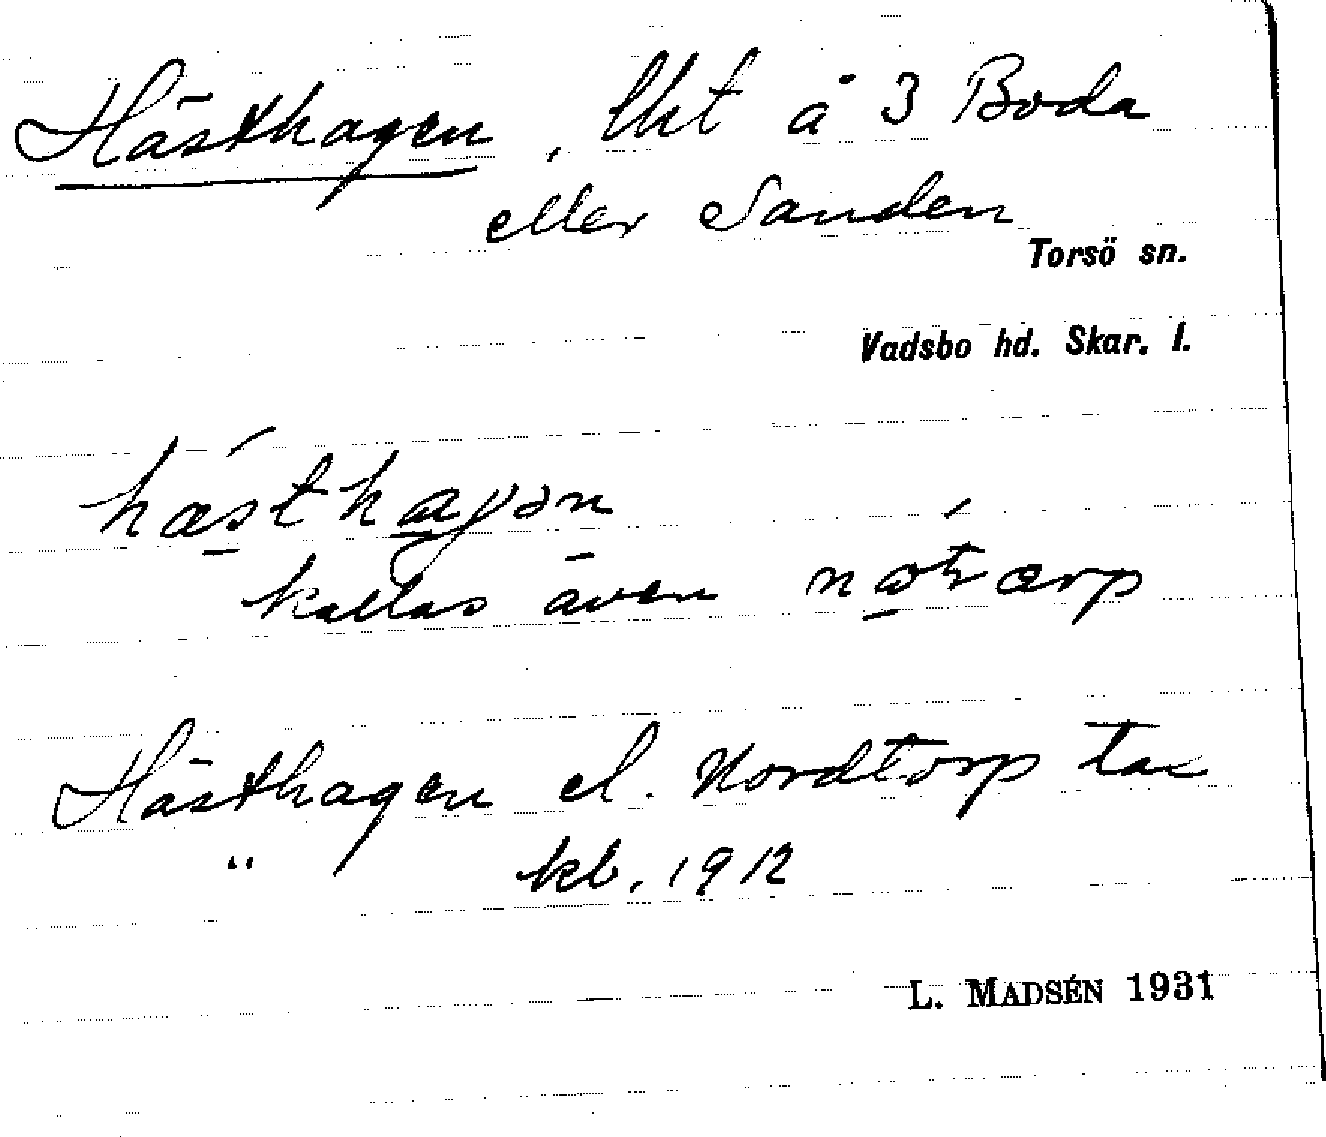 Hästhagen, lht å 3 Boda
eller Sanden
Torsö sn.
Vadsbo hd. Skar. l.
hæsthagən
kallas även
Hästhagen el. Nordtorp
" kb. 1912
L. MADSÉN 1931